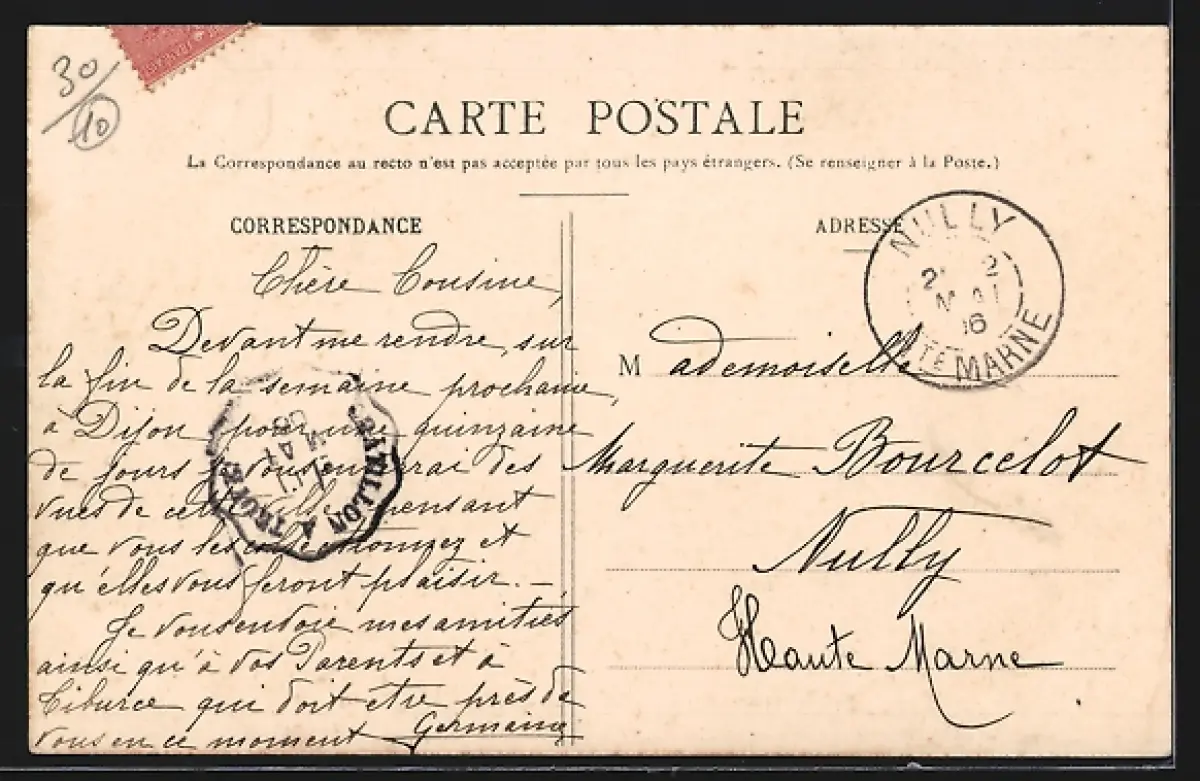 30/10
CARTE POSTALE
La Correspondance au recto n'est pas acceptée par tous les pays étrangers. (Se renseigner à la Poste.)
CORRESPONDANCE
Chère Cousine,
Devant me rendre, sur
la fin de la semaine prochaine,
à Dijon pour une quinzaine
de jours je vous enverrai des
vues de cette ville, pensant
que vous les collectionnez et
qu'elles vous feront plaisir. –
Je vous envoie mes amitiés
ainsi qu'à vos Parents et à
Tiburce qui doit etre près de
vous en ce moment Germaine
CHATILLON A TROYES
MAI
06
ADRESSE
NULLY
MAI
06
HTE MARNE
Mademoiselle
Marguerite Bourcelot
Nully
Haute Marne